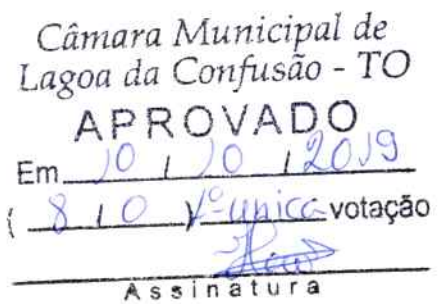 Câmara Municipal de
Lagoa da Confusão - TO
APROVADO
Em 10 / 10 / 2019
( 8 / 0 ) 1º unica votação
Assinatura